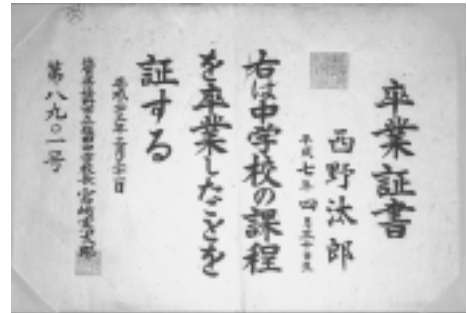 卒業証書
西野汰郎
平成七年四月三十日生
右は中学校の課程
を卒業したことを
証する
平成二十三年三月十一日
中学校長
第八九〇一号